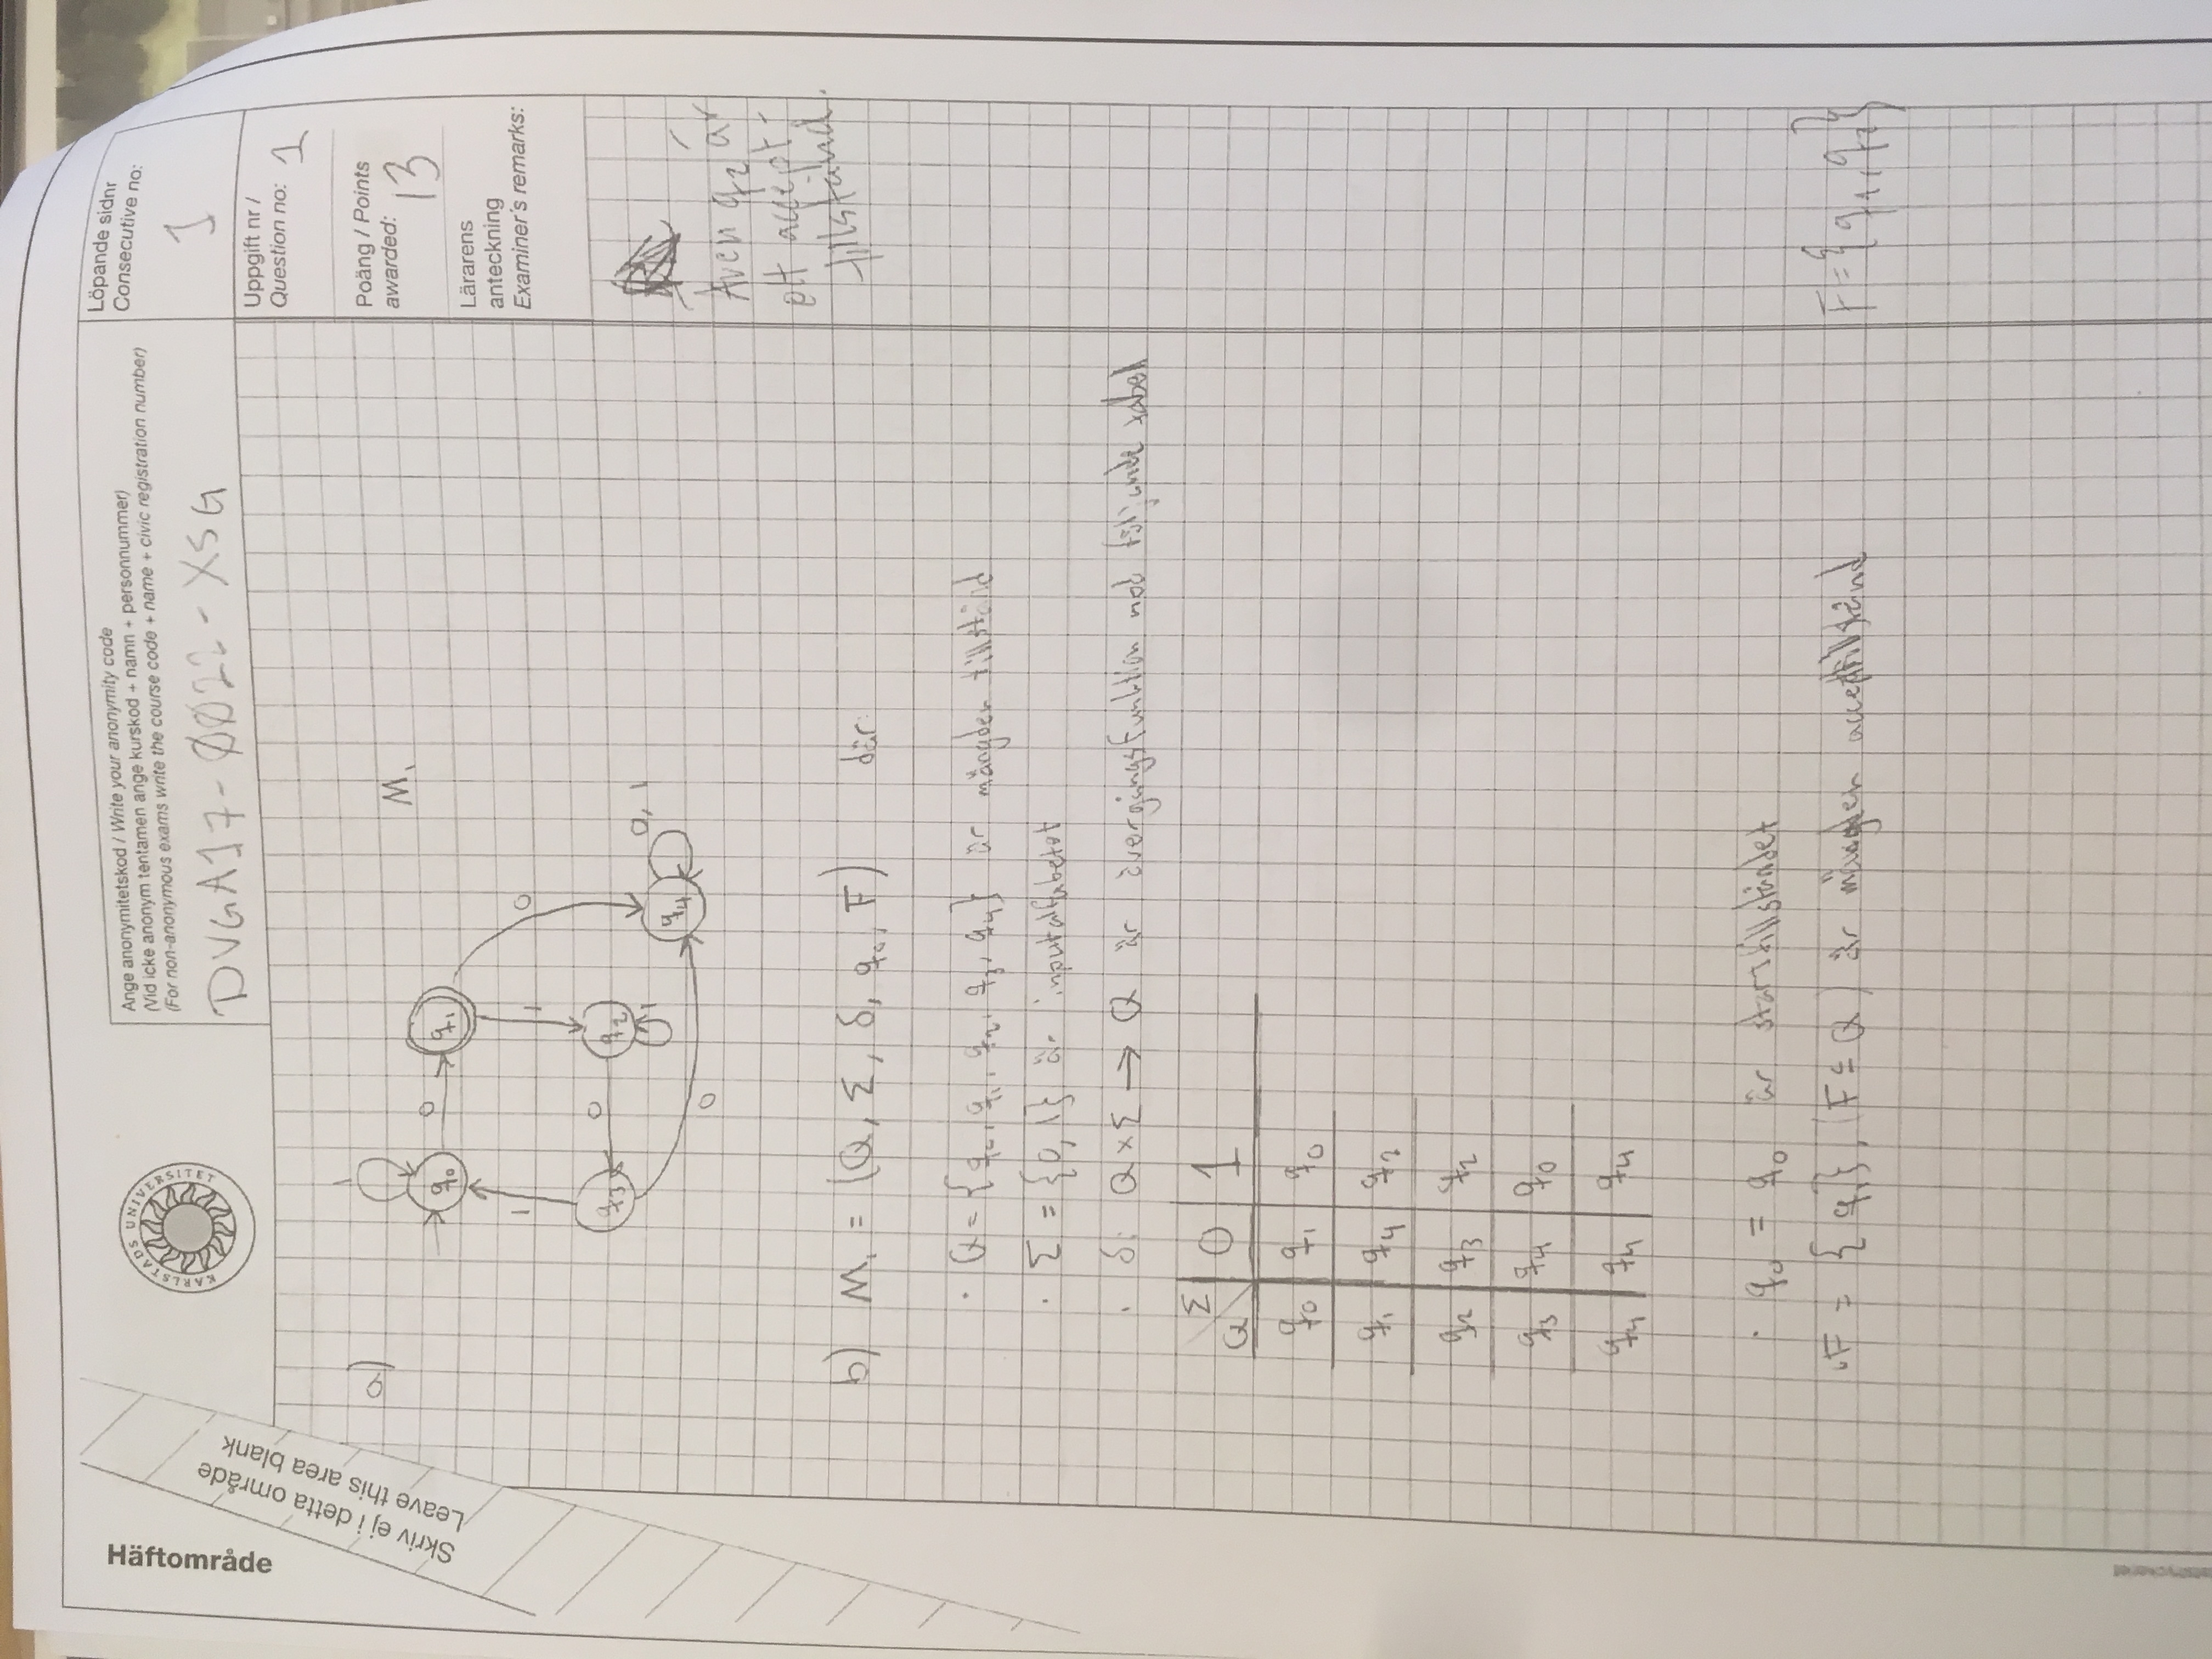 Häftområde
Skriv ej i detta område
Leave this area blank
KARLSTADS UNIVERSITET
Ange anonymitetskod / Write your anonymity code
(Vid icke anonym tentamen ange kurskod + namn + personnummer)
(For non-anonymous exams write the course code + name + civic registration number)
DVGA17-ØØ22-XSG
Löpande sidnr
Consecutive no:
1
Uppgift nr /
Question no: 1
Poäng / Points
awarded: 13
Lärarens
anteckning
Examiner's remarks:
a)
M₁
1
q₀ 0 q₁
1 1 0
q₃ 0 q₂
1
q₄ 0, 1
0
Även q₂ är
ett accept-
tillstånd.
b) M₁ = (Q, Σ, δ, q₀, F) där:
· Q = {q₀, q₁, q₂, q₃, q₄} är mängden tillstånd
· Σ = {0, 1} är inputalfabetet
· δ: Q × Σ → Q är övergångsfunktion med följande tabell
Σ
Q 0 1
q₀ q₁ q₀
q₁ q₄ q₂
q₂ q₃ q₂
q₃ q₄ q₀
q₄ q₄ q₄
· q₀ = q₀ är starttillståndet
· F = {q₁}, (F ⊆ Q) är mängden accepttillstånd
F = {q₁, q₂}